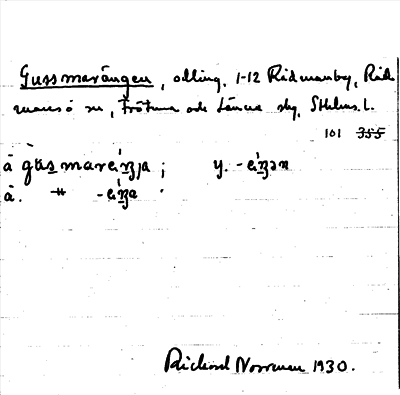 Gussmarängen, odling, 1-12 Rådmanby, Råd
mansö sn, Frötuna och Länna skg, Sthlms l.
101 355
å gùsmaréiŋja ; y. -éiŋən
ä. " -éiŋa
Richard Norrman 1930.